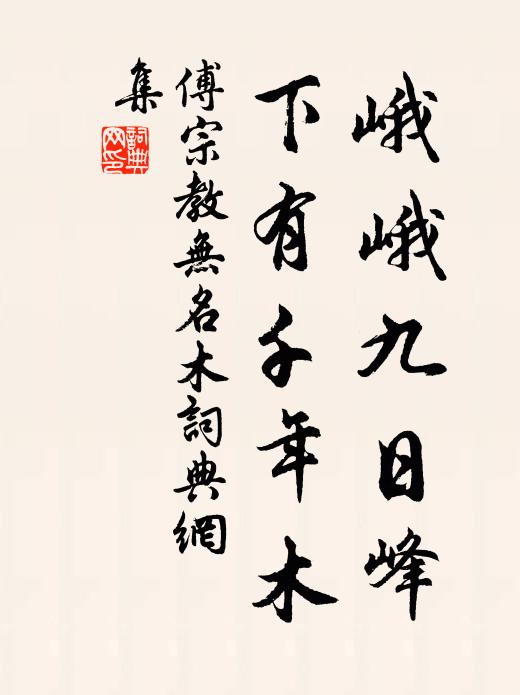 峨峨九日峰
下有千年木
傅宗教無名木詞典網
集
詞典網印